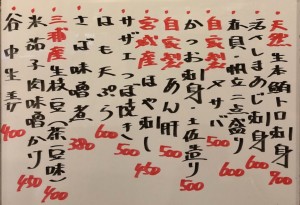 天然生本鮪トロ刺身 900
活〆しまあじ刺身 600
春貝・帆立二点盛り 600
自家製〆サバ 500
かつお刺身 土佐造り
自家製あん肝 500
宮城産ほや刺し 450
サザエつぼ焼き 500
はも天ぷら 600
さば味噌煮 380
三浦産生枝豆(茶豆味) 400
水茄子肉味噌がり 450
谷中生姜 400